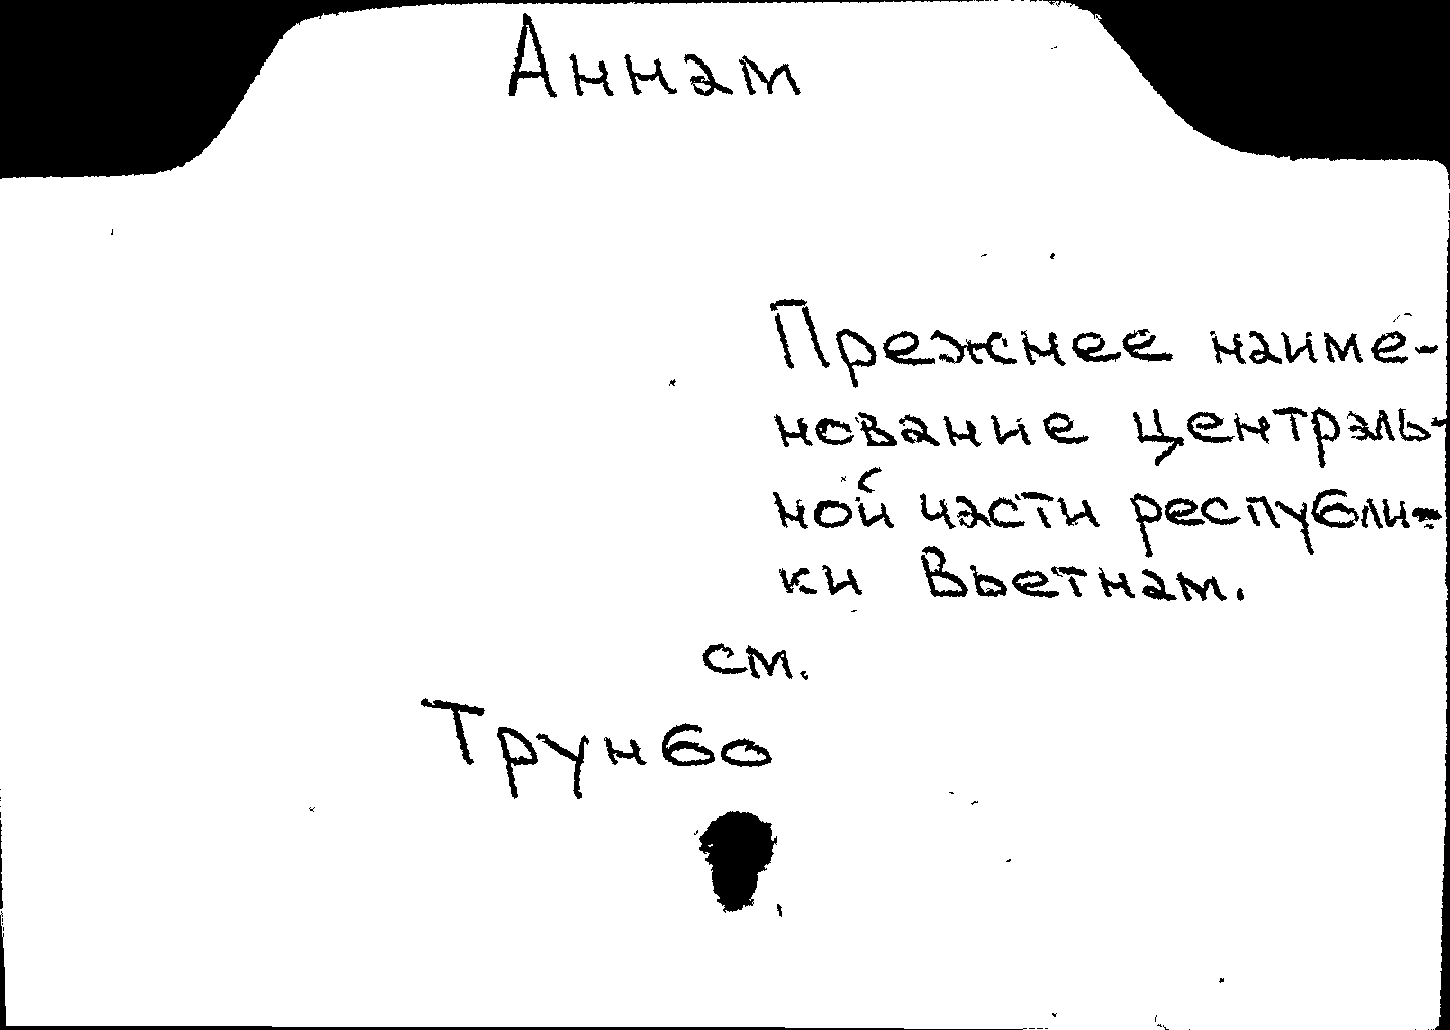 Аннам
Прежнее наиме-
нование централь-
ной части республи-
ки Вьетнам.
см.
Трунбо